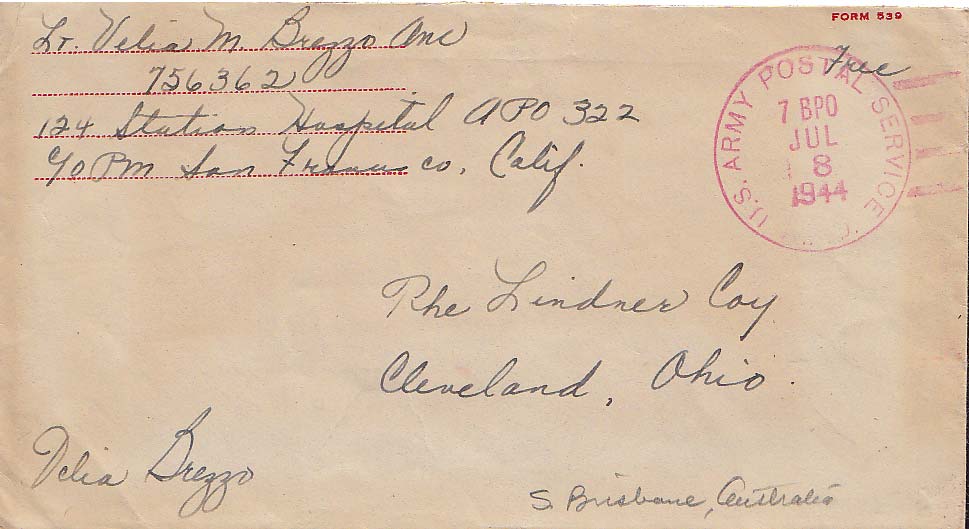 FORM 539
Lt. Velia M Brezzo Anc
756362
124 Station Hospital APO 322
c/o PM San Francisco, Calif.
Free
U.S. ARMY POSTAL SERVICE
7 BPO
JUL
8
1944
The Lindner Coy
Cleveland, Ohio.
Velia Brezzo
S. Brisbane, Australia